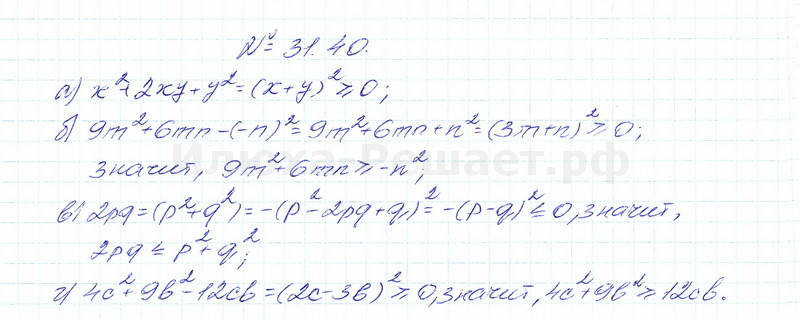 № 31.40.
а) x²+2xy+y²=(x+y)²≥0;
б) 9m²+6mn-(-n)²=9m²+6mn+n²=(3m+n)²≥0;
значит, 9m²+6mn≥-n²;
в) 2pq=(p²+q²)=-(p²-2pq+q)²=-(p-q)²≤0, значит,
2pq≤p²+q²;
г) 4c²+9b²-12cb=(2c-3b)²≥0, значит, 4c²+9b²≥12cb.
ИлюхаРешает.рф